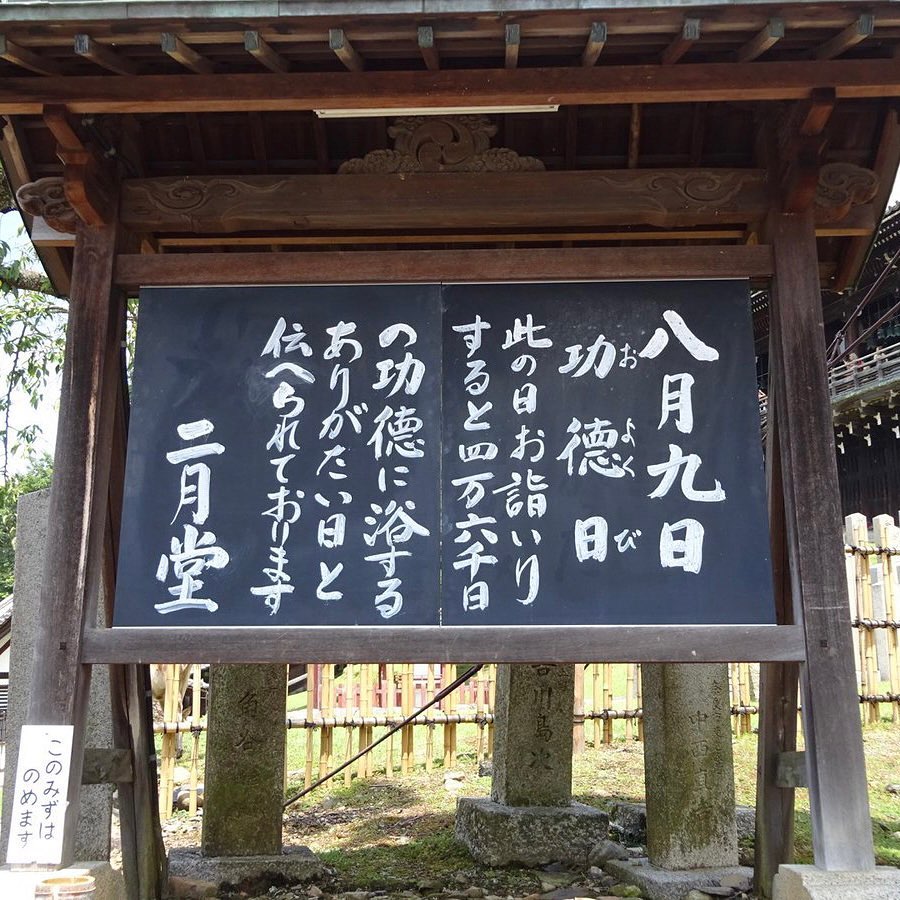 八月九日
功徳日
およくび
此の日お詣いり
すると四万六千日
の功徳に浴する
ありがたい日と
伝へられております
二月堂
このみずは
のめます